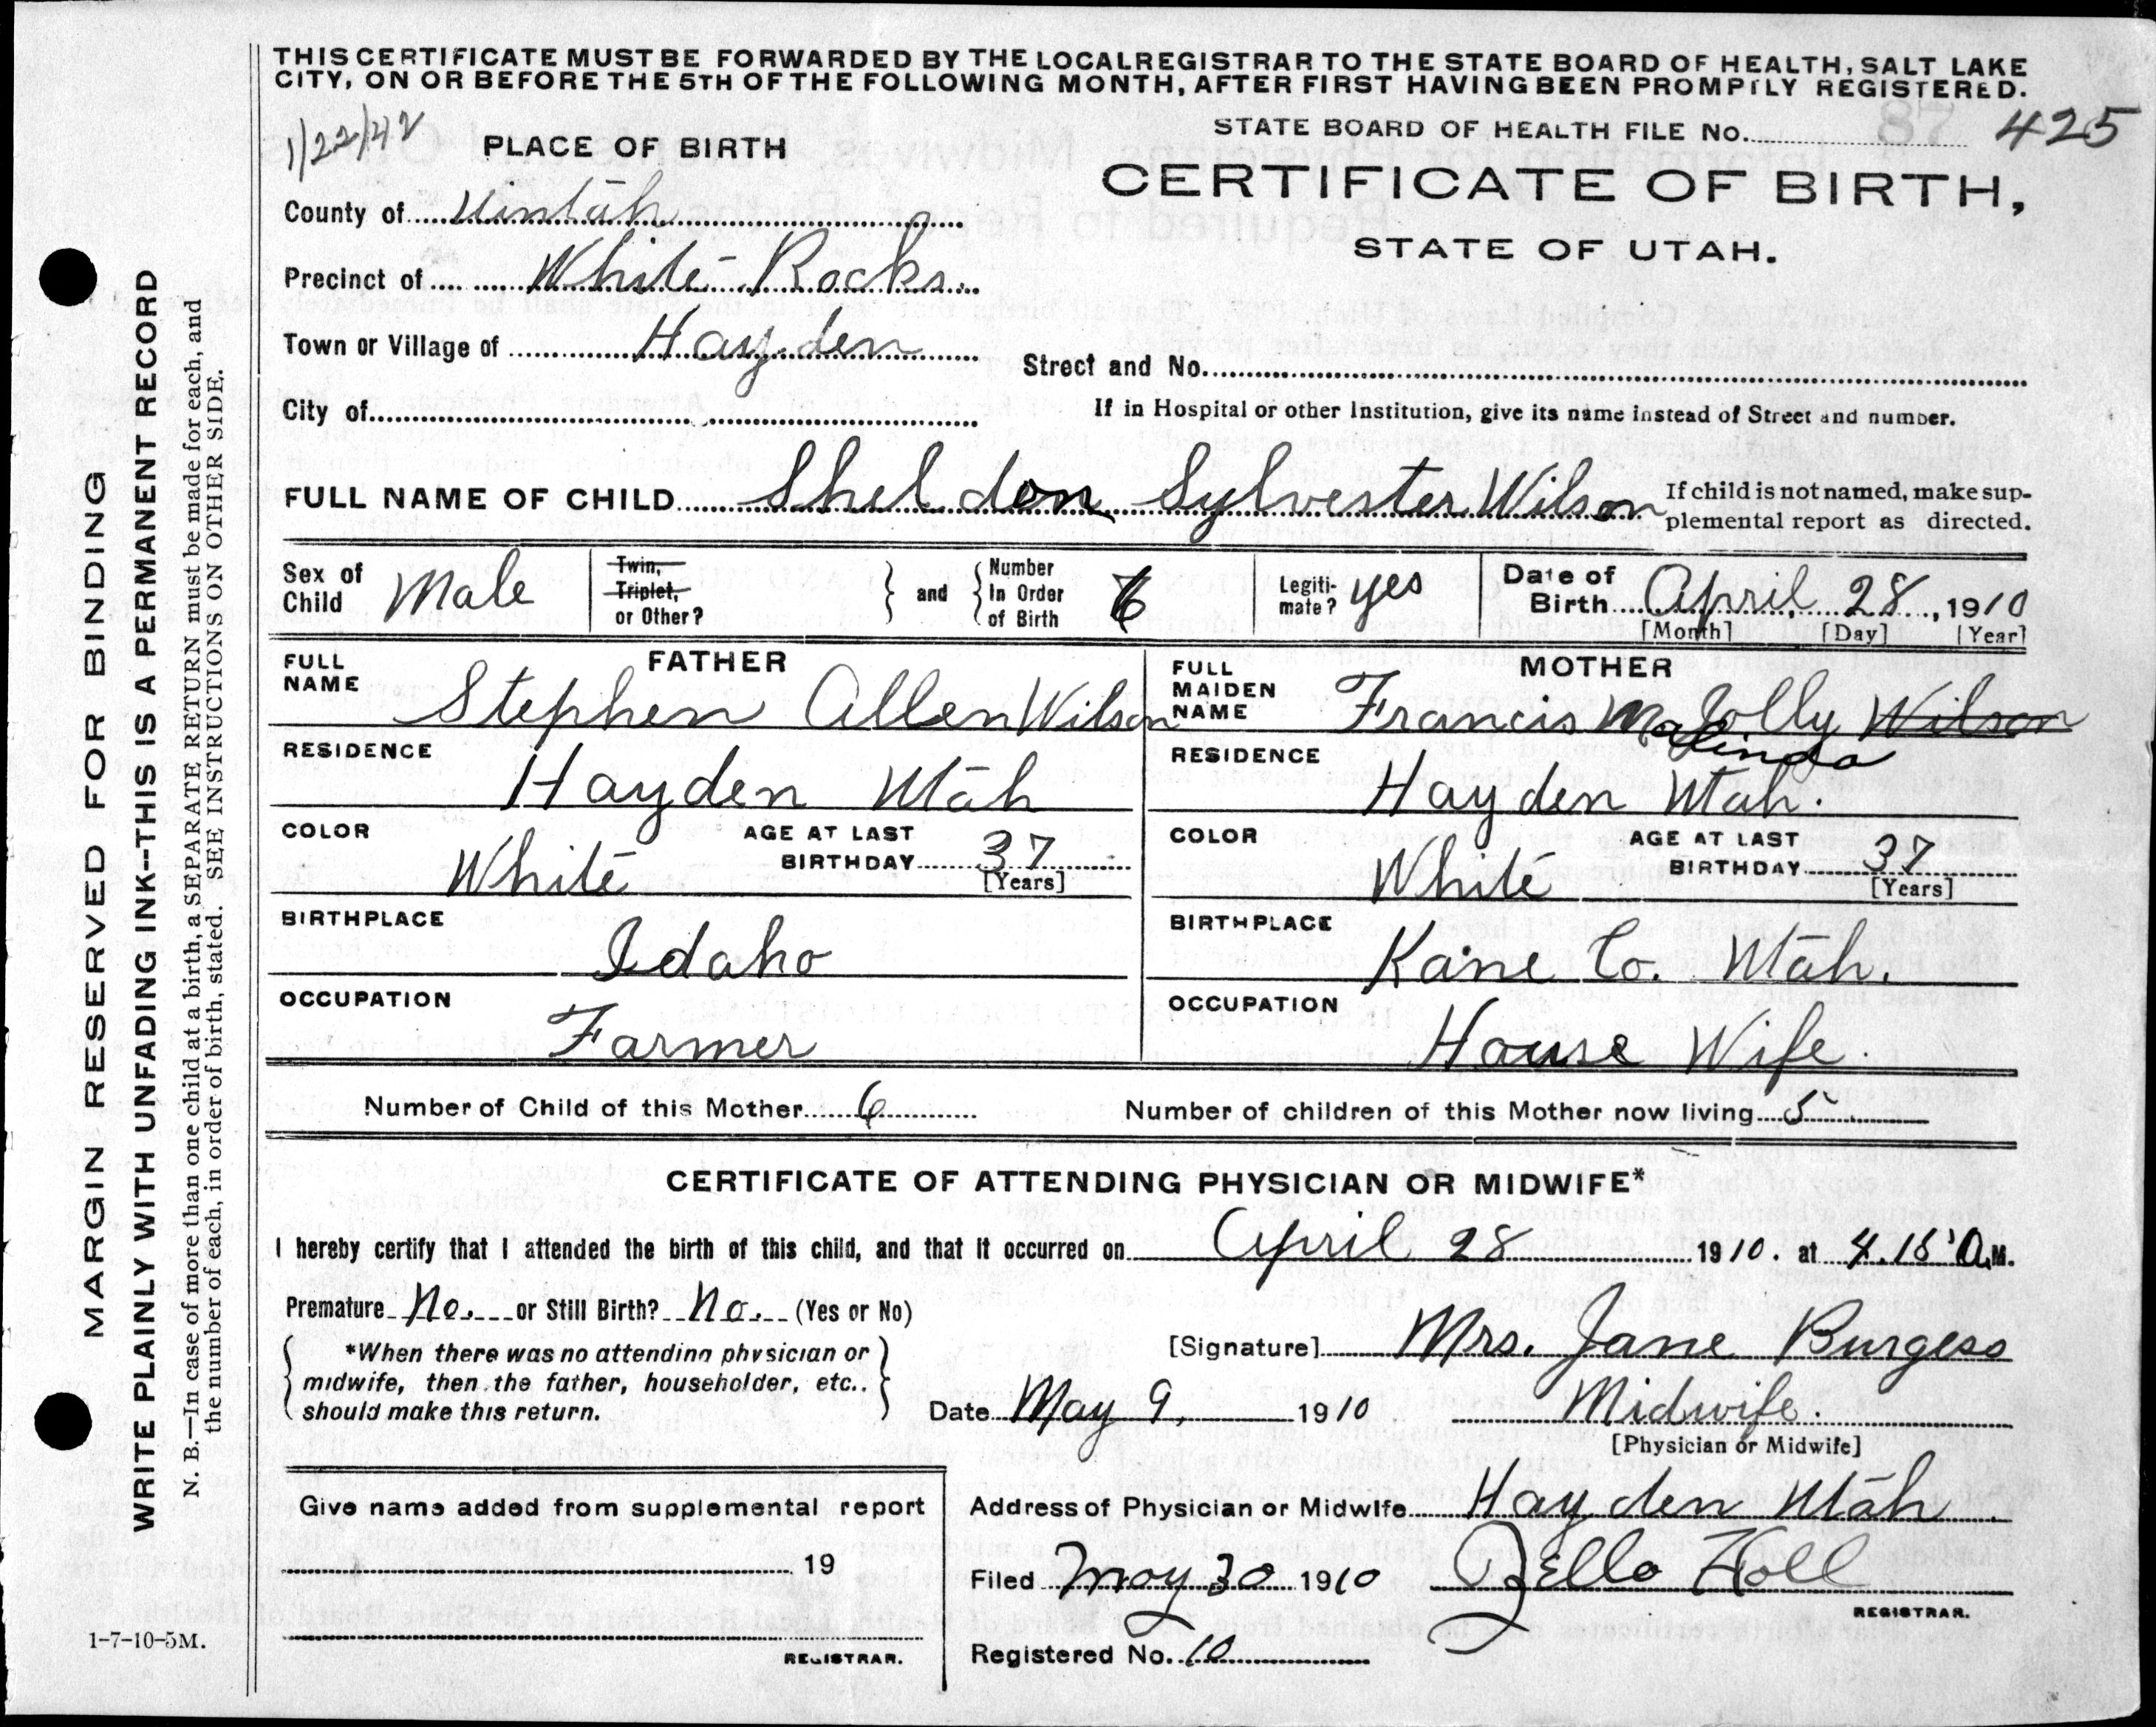 THIS CERTIFICATE MUST BE FORWARDED BY THE LOCAL REGISTRAR TO THE STATE BOARD OF HEALTH, SALT LAKE
CITY, ON OR BEFORE THE 5TH OF THE FOLLOWING MONTH, AFTER FIRST HAVING BEEN PROMPTLY REGISTERED.
1/22/42
PLACE OF BIRTH
STATE BOARD OF HEALTH FILE No. 87 425
CERTIFICATE OF BIRTH,
STATE OF UTAH.
County of Uintah
Precinct of White Rocks
Town or Village of Hayden
Street and No.
City of
If in Hospital or other Institution, give its name instead of Street and number.
FULL NAME OF CHILD Sheldon Sylvester Wilson
If child is not named, make sup-
plemental report as directed.
Sex of Child Male
Twin, Triplet, or Other?
and
Number In Order of Birth 6
Legiti-mate? yes
Date of Birth April 28, 1910
[Month] [Day] [Year]
FATHER
FULL NAME Stephen Allen Wilson
MOTHER
FULL MAIDEN NAME Francis Malinda Jolly Wilson
RESIDENCE Hayden Utah
RESIDENCE Hayden Utah.
COLOR White AGE AT LAST BIRTHDAY 37 [Years]
COLOR White AGE AT LAST BIRTHDAY 37 [Years]
BIRTHPLACE Idaho
BIRTHPLACE Kane Co. Utah.
OCCUPATION Farmer
OCCUPATION House Wife.
Number of Child of this Mother 6
Number of children of this Mother now living 5
CERTIFICATE OF ATTENDING PHYSICIAN OR MIDWIFE*
I hereby certify that I attended the birth of this child, and that it occurred on April 28 1910. at 4.15 A.M.
Premature No. or Still Birth? No. (Yes or No)
*When there was no attending physician or
midwife, then the father, householder, etc..
should make this return.
[Signature] Mrs. Jane Burgess
Date May 9, 1910
Midwife.
[Physician or Midwife]
Give name added from supplemental report
19
REGISTRAR.
Address of Physician or Midwife Hayden Utah
Filed May 30 1910 Zella Holl
REGISTRAR.
Registered No. 10
1-7-10-5M.
MARGIN RESERVED FOR BINDING
WRITE PLAINLY WITH UNFADING INK--THIS IS A PERMANENT RECORD
N. B.—In case of more than one child at a birth, a SEPARATE RETURN must be made for each, and
the number of each, in order of birth, stated. SEE INSTRUCTIONS ON OTHER SIDE.